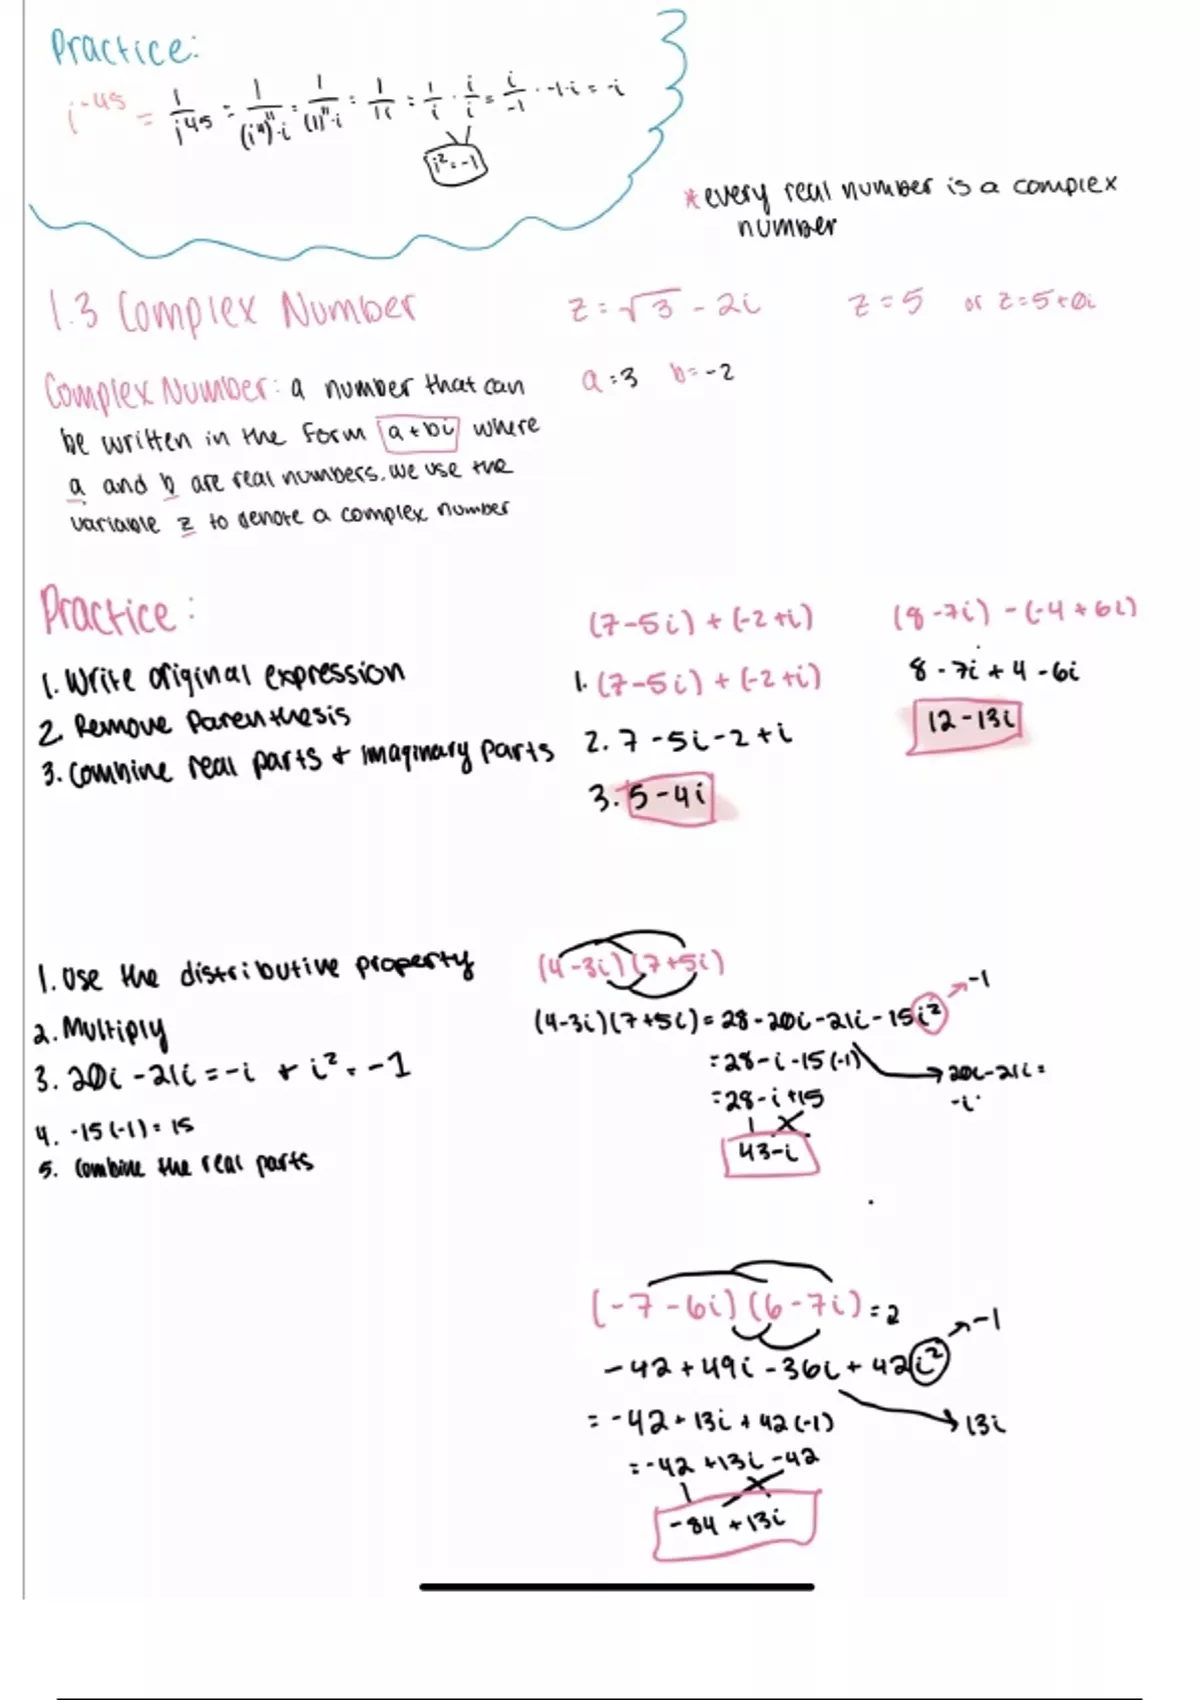 Practice:
i^-45 = 1/i^45 = 1/(i^4)^11·i = 1/(1)^11·i = 1/1i = 1/i · i/i = i/-1 · -1·i = -i
i² = -1
*every real number is a complex
number
1.3 Complex Number
z = √3 - 2i z = 5 or z = 5+0i
Complex Number: a number that can
be written in the form a + bi where
a and b are real numbers. We use the
variable z to denote a complex number
a = 3 b = -2
Practice:
1. Write original expression
2. Remove Parenthesis
3. Combine real parts + imaginary parts
(7-5i) + (-2+i)
1. (7-5i) + (-2+i)
2. 7 - 5i - 2 + i
3. 5 - 4i
(8-7i) - (-4+6i)
8 - 7i + 4 - 6i
12 - 13i
1. Use the distributive property
2. Multiply
3. 20i - 21i = -i + i² = -1
4. -15(-1) = 15
5. Combine the real parts
(4-3i)(7+5i)
(4-3i)(7+5i) = 28 - 20i - 21i - 15i² → -1
= 28 - i - 15(-1) → 20i - 21i =
-i
= 28 - i + 15
43 - i
(-7-6i)(6-7i) = 2
-42 + 49i - 36i + 42i² → -1
= -42 + 13i + 42(-1) → 13i
= -42 + 13i - 42
-84 + 13i